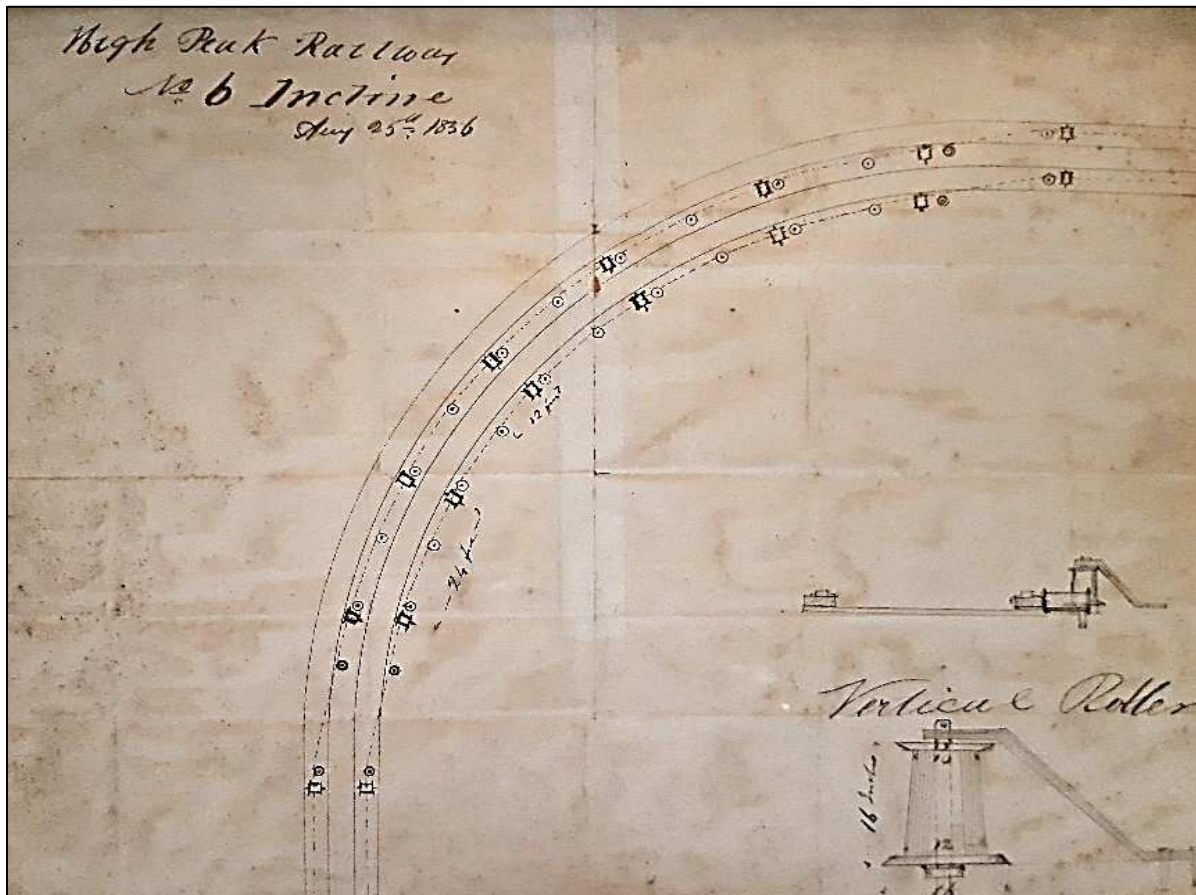 High Peak Railway
No 6 Incline
Aug 25th 1836
12 feet
24 feet
Vertical Roller
16 Inches
13
12